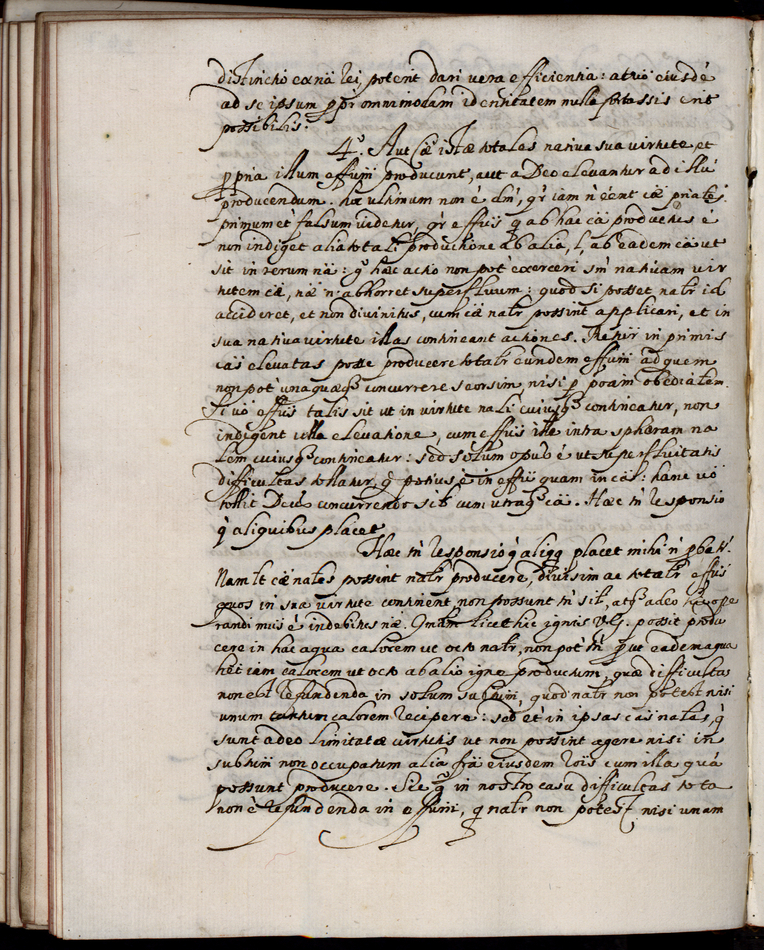 distinctio ex nã rei, poterit dari vera efficientia: at vº eiusdẽ
ad se ipsum ppr omnimodam identitatem nulla fortassis erit
possibilis.
4º. Aut cãe istæ totales nativa sua virtute et
ppria illum effum producunt, aut a Deo elevantur ad illũ
producendum. hoc ultimum non ẽ dm, qr iam ñ eẽnt cãe
primum et falsum videtur, qr effus q ab hac cã productus ẽ
non indiget alia totali productione ab alia, l, ab eadem cã ut
sit in rerum nã: gº hæc actio non pot exerceri sm nativam vir
tutem cãe, nã n. abhorret superfluum: quod si posset natr id
accideret, et non divinitus, cum cãe natr possint applicari, et in
sua nativa virtute illas contineant actiones. in primis
cãs elevatas posse producere totalr eundem effum ad quem
non pot unaquæq concurrere seorsim, nisi p poam obedialem.
Si vº effus talis sit ut in virtute nali cuiusq contineatur, non
indigent ulla elevatione, cum effus ille intra sphæram na
lem cuiusq contineatur: sed solum opus ẽ ut superfluitatis
difficultas tollatur, q potius ẽ in effu quam in cãs: hanc vº
tollit Deus concurrendo sil cum utraq cã. Hæc tñ responsio
q aliquibus placet
Hæc tñ responsio q aliqq placet mihi ñ pbatr.
Nam lt cãe nales possint natr producere, divisim ac totalr effus
quos in sua virtute continent non possunt tñ sil, atq adeo hic ope
randi modus ẽ indebitus nã. licet hic ignis v.g. possit produ
cere in hac aqua calorem ut octo natr, non pot tñ put eadem aqua
het iam calorem ut octo ab alio igne productum, quæ difficultas
non est refundenda in solum subtum, quod natr non potest nisi
unum tantum calorem recipere: sed et in ipsas cãs nales, q
sunt adeo limitatæ virtutis ut non possint agere nisi in
subtum non occupatum alia frã eiusdem rõis cum illa quã
possunt producere. Sic gº in nostro casu difficultas tota
non ẽ refundenda in effum, q natr non potest nisi unam